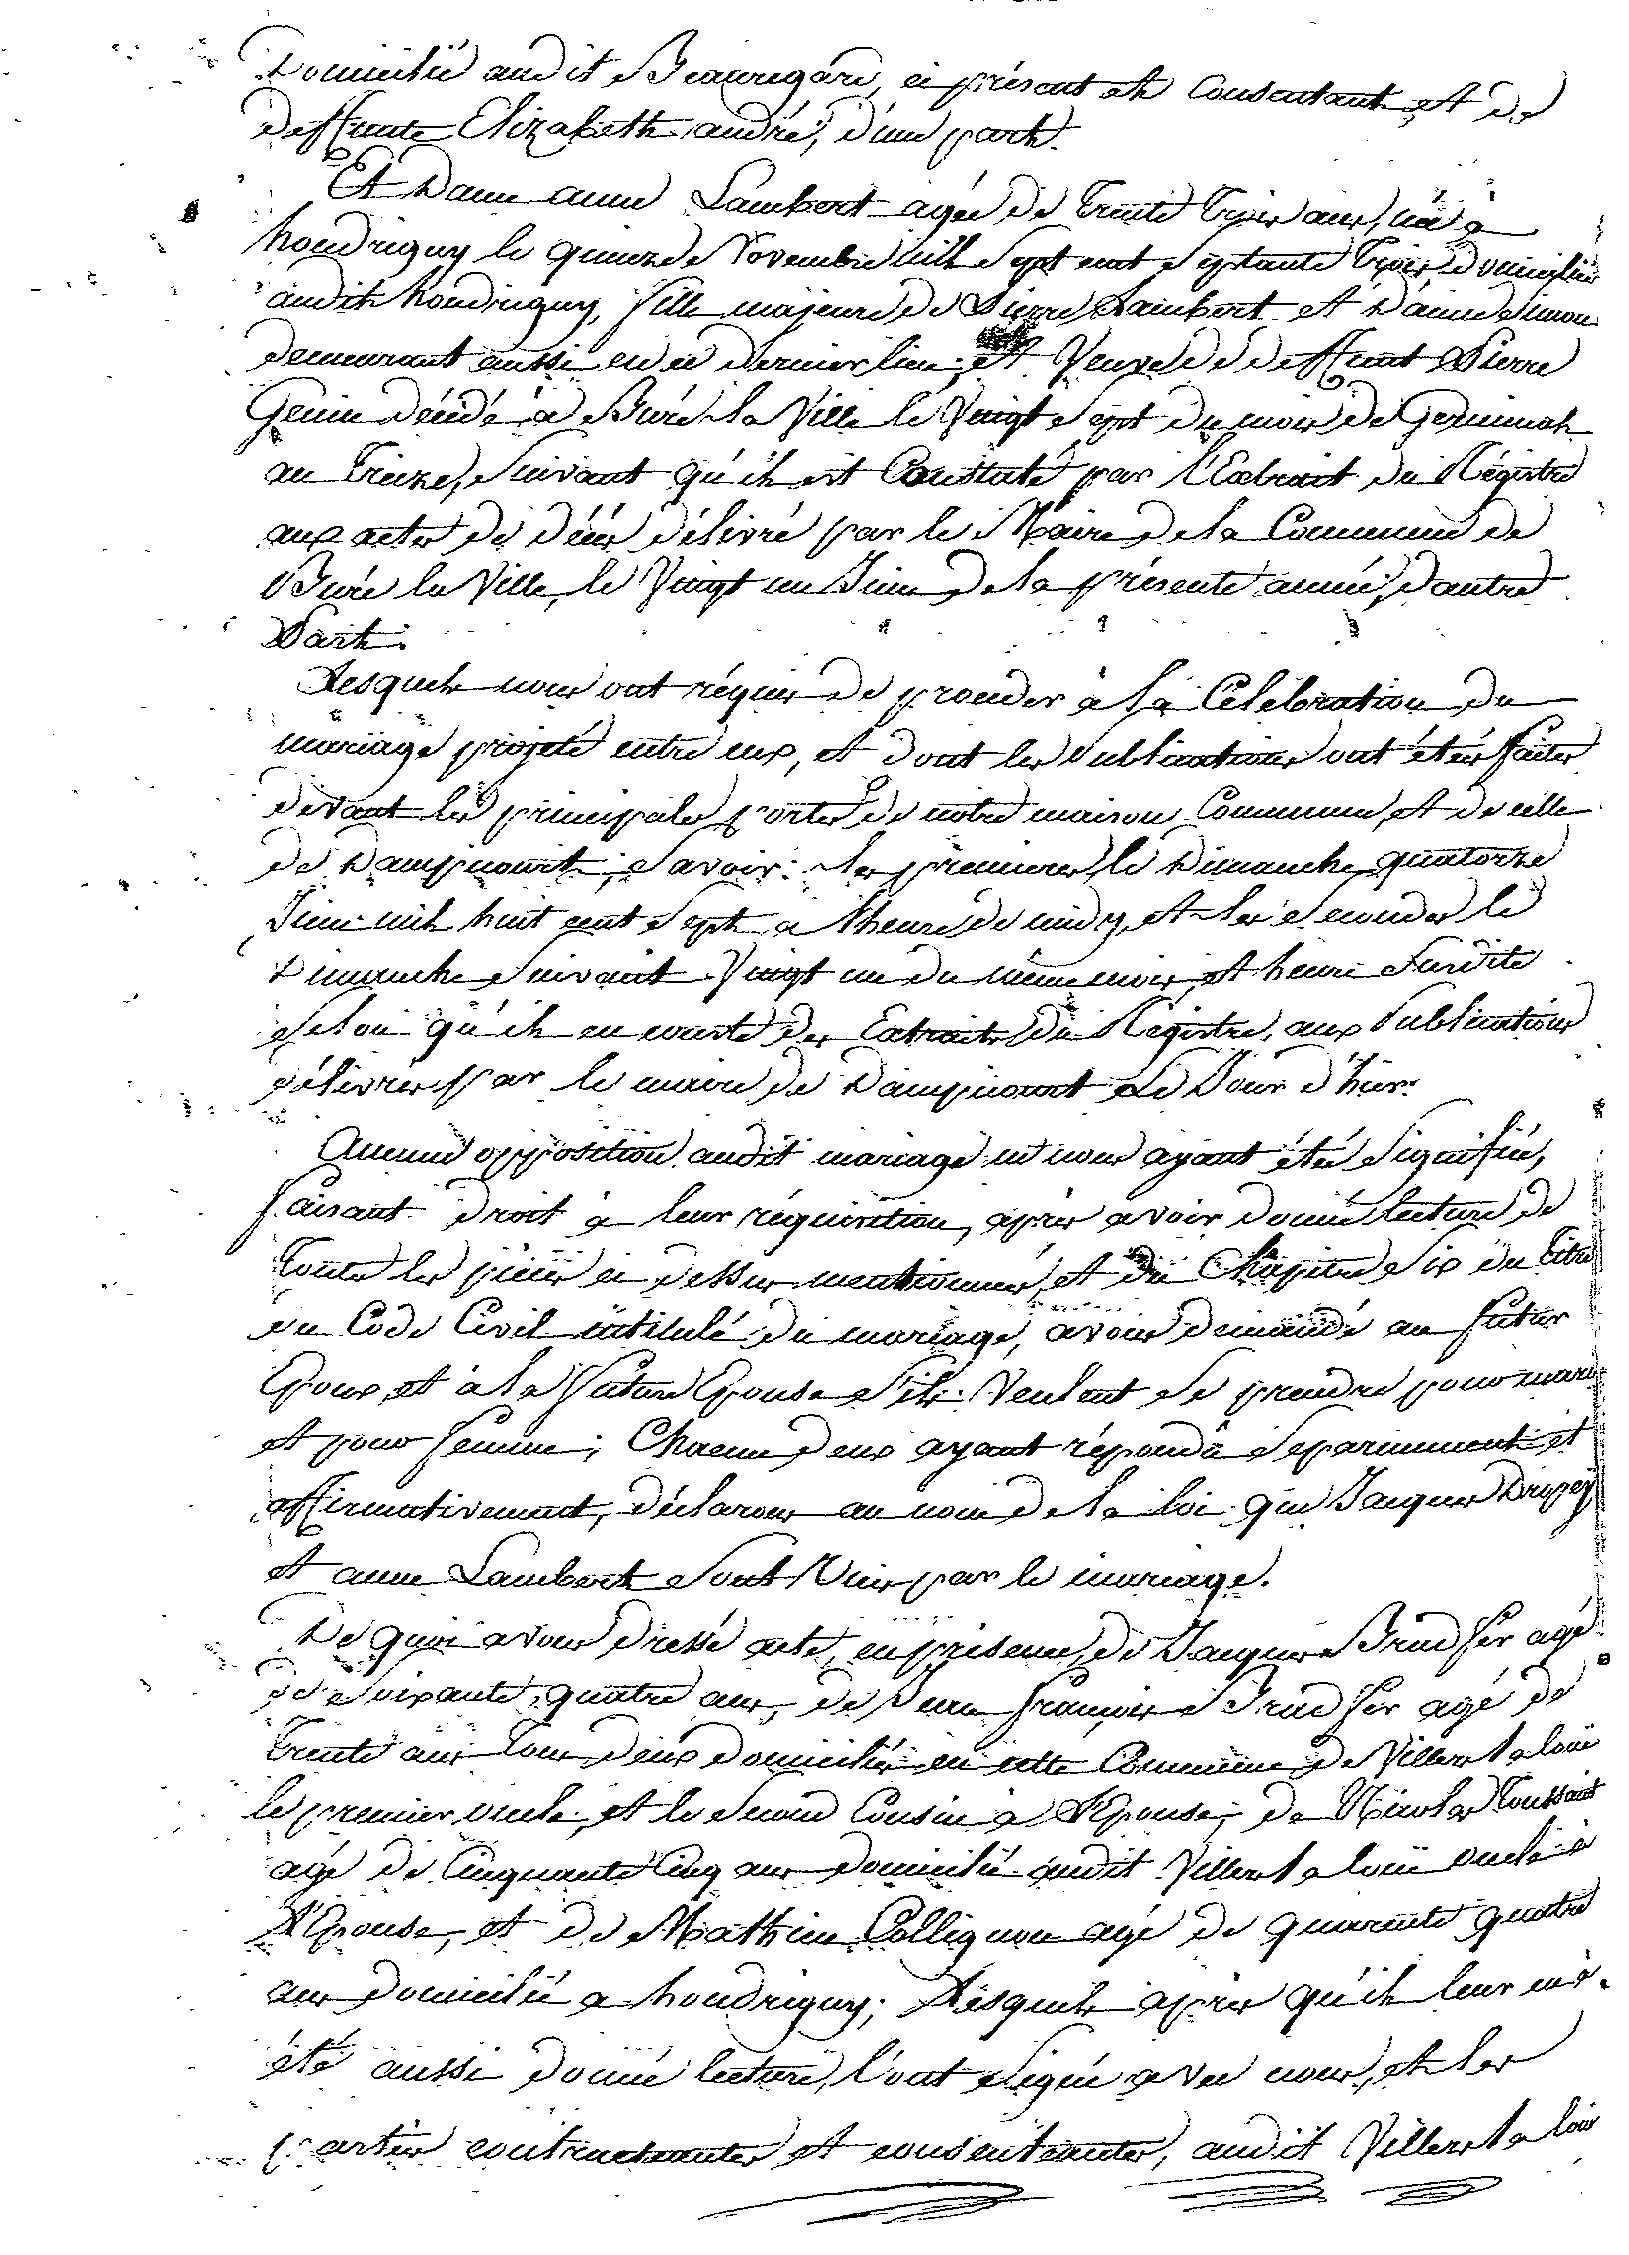 Domicilié audit Beauregard, ci présent et Consentant et de
deffunte Elizabeth andré, d'une part.
Et Dame anne Lambert agée de trente trois ans, née à
houdrigny le quinze de Novembre mil Sept cent Septante trois, domiciliée
audit houdrigny, fille majeure de Pierre Lambert et D'anne Simon
demeurant aussi en ce dernier lieu; et Veuve de deffunt Pierre
Genin décédé à Buré la Ville le Vingt Sept du mois de Germinal
an treize, Suivant qu'il est Constaté par l'Extrait du Régistre
aux actes de décès délivré par le Maire de la Commune de
Buré la Ville, le Vingt un Juin de la présente année, d'autre
Part.
Lesquels nous ont réquis de procéder à la Célébration du
mariage projeté entre eux, et dont les Publications ont étés faites
devant les principales portes de nôtre maison Commune, et de celle
de Dampicourt; Savoir: les premieres, le Dimanche quatorze
Juin mil huit cent Sept a l'heure de midy, et les Secondes le
Dimanche Suivant Vingt un du même mois, et heure Susdite
Selon qu'il en conste des Extraits du Régistre, aux Publications
délivrés par le maire de Dampicourt Le Jour d'hier.
Aucune opposition audit mariage ne nous ayant été Signifiée,
faisant droit à leur réquisition, après avoir donné lecture de
toutes les pièces ci dessus mentionnées, et du Chapitre Six du titre
du Code Civil intitulé du mariage, avons demandé au futur
Epoux, et à la future Epouse S'ils Veulent Se prendre pour mari
et pour femme; Chacun d'eux ayant répondu Separemment et
affirmativement, déclarons au nom de la loi que Jacques
et anne Lambert Sont Unis par le mariage.
De quoi avons dressé acte, en présence, de Jacques agé
de Soixante quatre ans, de Jean françois agé de
trente ans tous deux domiciliés en cette Commune de Villers la loue
le premier oncle, et le Second Cousin a L'Epouse, de Nicolas Toussaint
agé de Cinquante Cinq ans domicilié audit Villers la loue oncle à
L'Epouse, et de Mathieu Collignon agé de quarante quatre
ans domicilié a houdrigny; Lesquels après qu'il leur en à
été aussi donné lecture, l'ont Signé avec nous, et les
parties contractantes et consentantes, audit Villers la loue